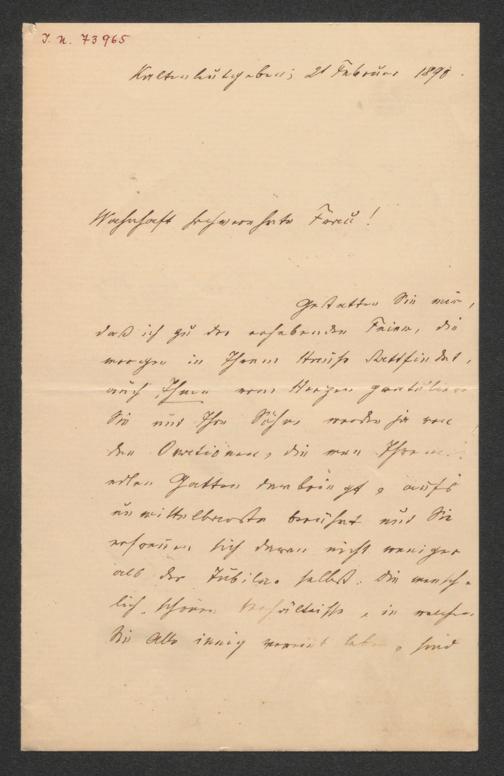 I. N. 73965
Kaltenleutgeben, 21 Februar 1890.
Wahrhaft hochverehrte Frau!
Gestatten Sie mir,
daß ich zu der erhebenden Feier, die
morgen in Ihrem Hause stattfindet,
auch Ihnen vom Herzen gratuliere
Sie und Ihre Söhne werden ja von
den Ovationen, die man Ihrem
edlen Gatten darbringt, aufs
unmittelbarste berührt und Sie
erfreuen sich daran nicht weniger
als der Jubilar selbst. Die mensch-
lich schönen Verhältnisse, in welchen
Sie Alle innig vereint leben, sind